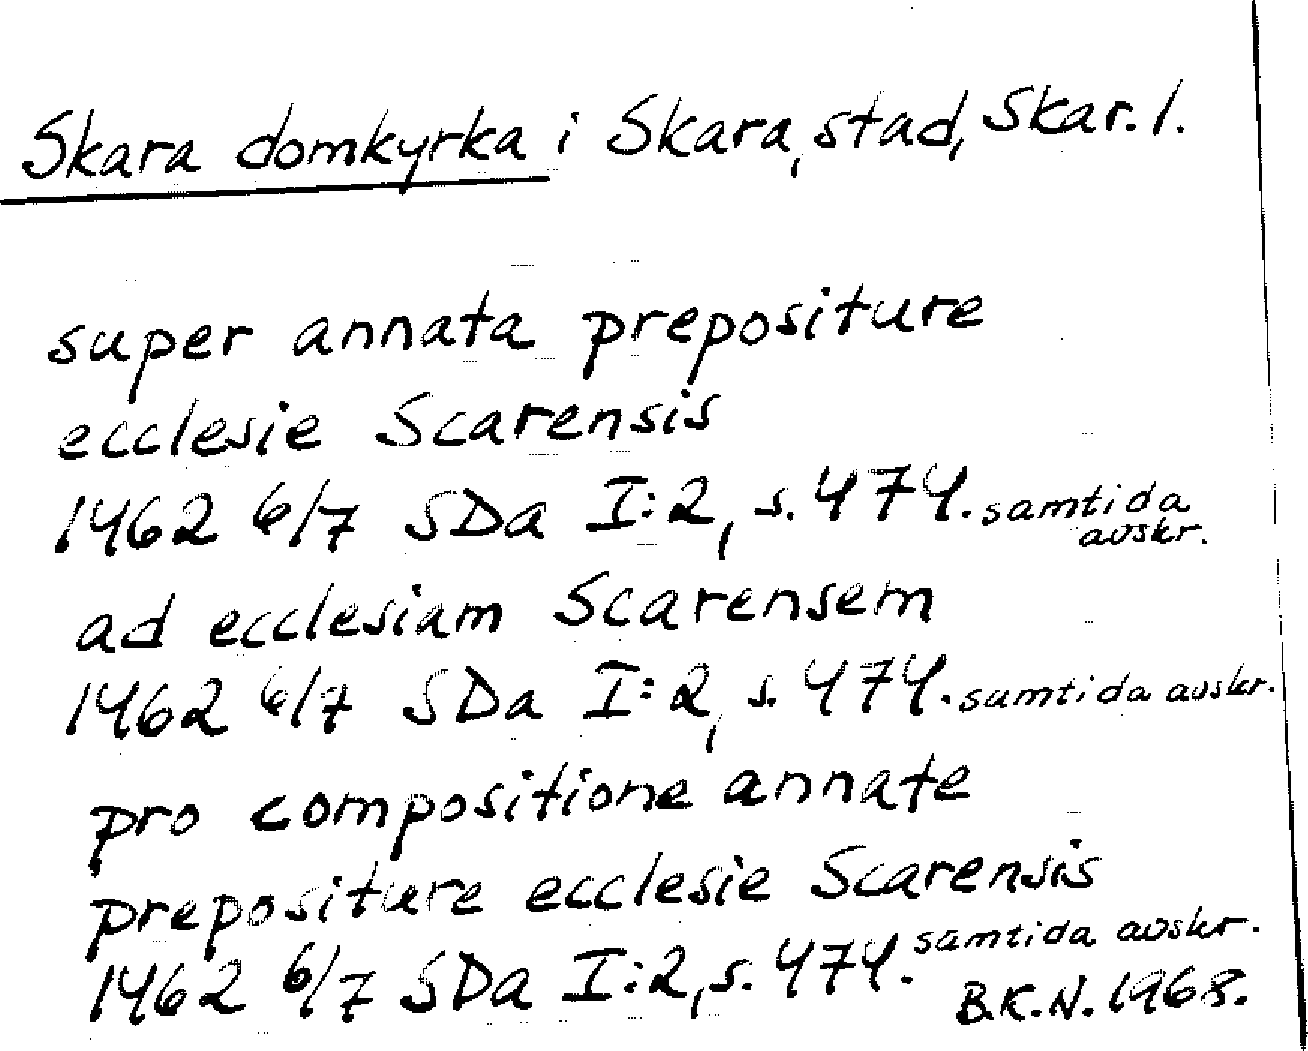 Skara domkyrka i Skara, stad, Skar. l.
super annata prepositure
ecclesie Scarensis
1462 6/7 SDa I:2, s. 474. samtida
avskr.
ad ecclesiam Scarensem
1462 6/7 SDa I:2, s. 474. samtida avskr.
pro compositione annate
prepositure ecclesie Scarensis
1462 6/7 SDa I:2, s. 474. samtida avskr.
B.K.N. 1968.